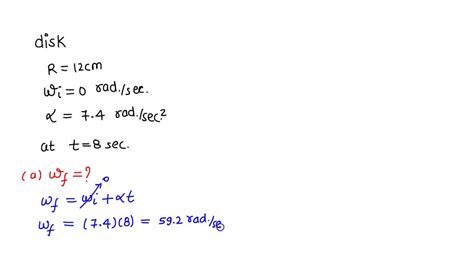 disk
R = 12cm
ωi = 0 rad./sec.
α = 7.4 rad/sec²
at t = 8 sec.
(a) ωf = ?
ωf = ωi + αt
0
ωf = (7.4)(8) = 59.2 rad./se